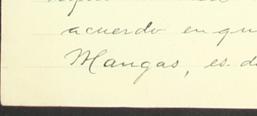 acuerdo en qu
Mangas, es d